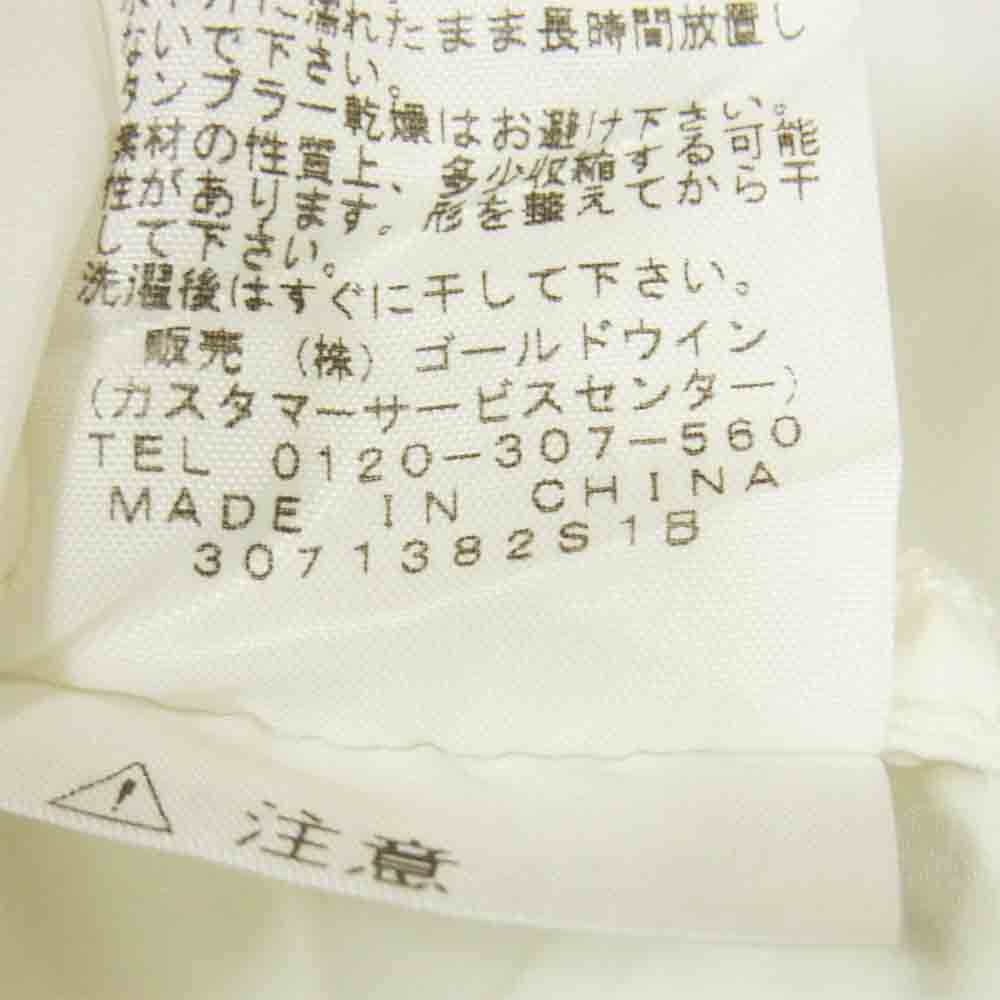 濡れたまま長時間放置し
ないで下さい。
タンブラー乾燥はお避け下さい。
素材の性質上、多少収縮する可能
性があります。形を整えてから干
して下さい。
洗濯後はすぐに干して下さい。
販売 (株) ゴールドウイン
(カスタマーサービスセンター)
TEL 0120-307-560
MADE IN CHINA
3071382S1B
注意